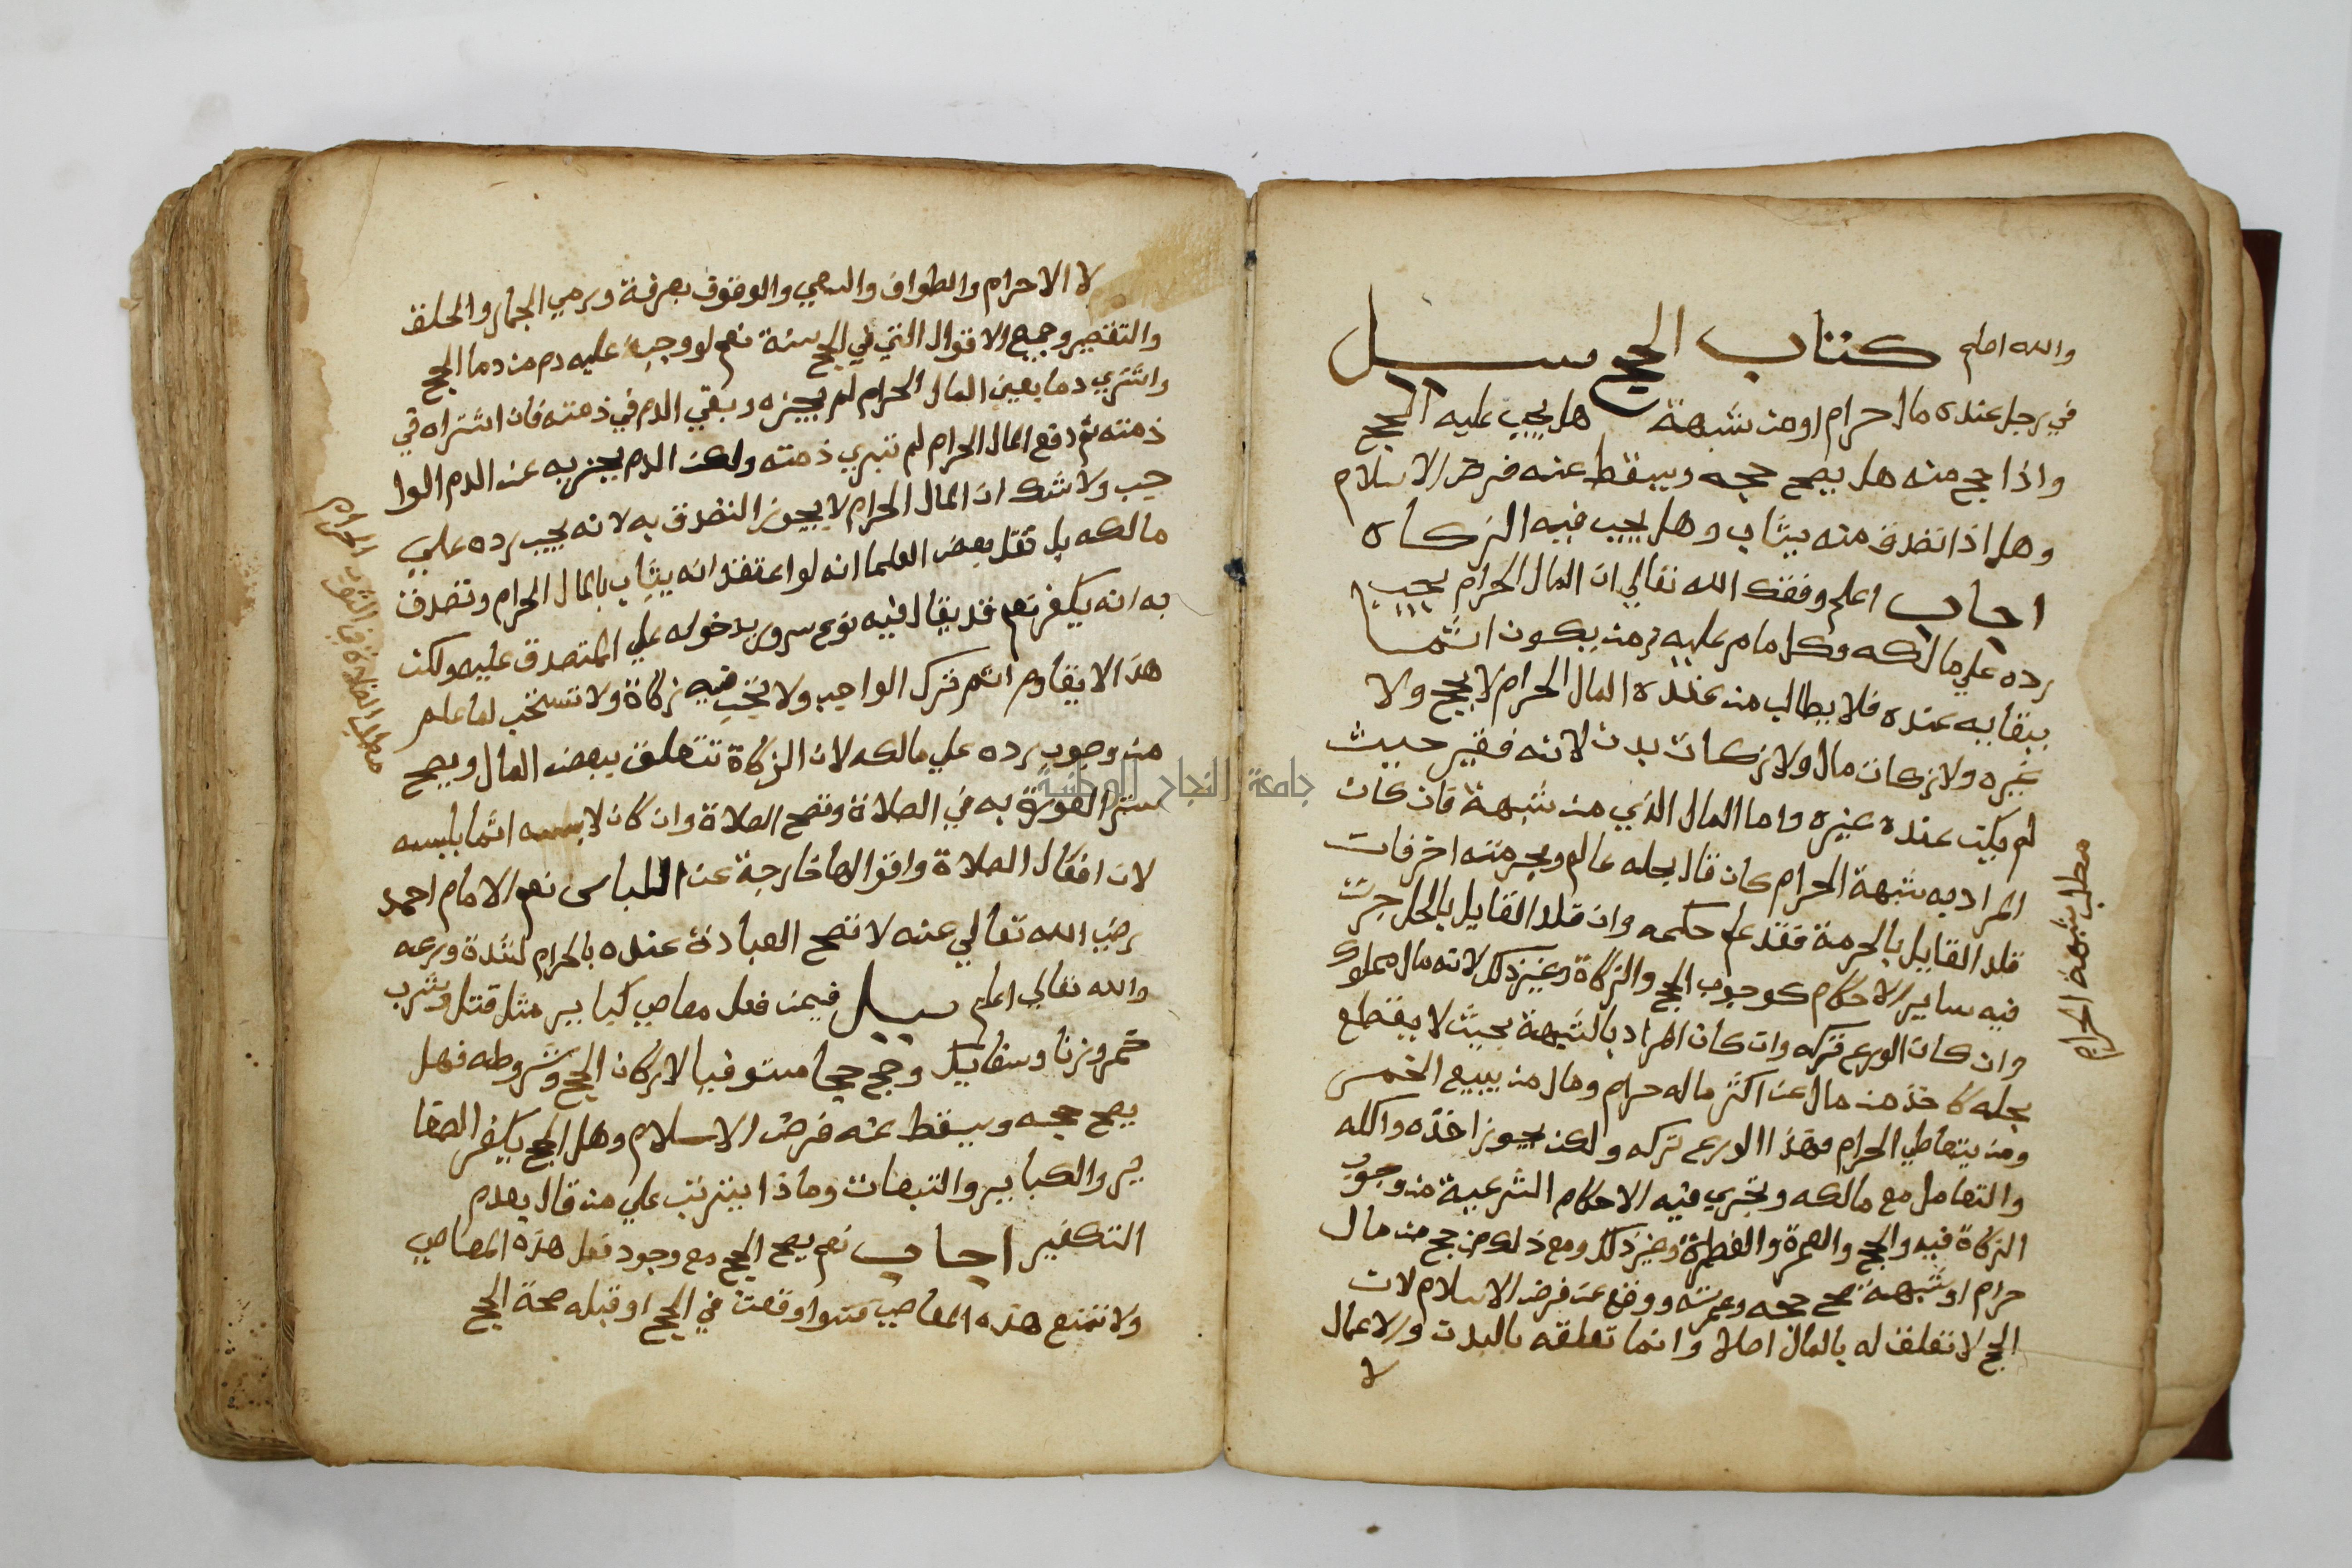 والله اعلم كتاب الحج سيل
في رجل عنده مال حرام او من شبهة هل يجب عليه الحج
واذا حج منه هل يصح حجه ويسقط عنه فرض الاسلام
وهل اذا تصدق منه يثاب وهل يجب فيه الزكاه
اجاب اعلم وفقك الله تعالي ان المال الحرام يجب
رده علي مالكه وكل ما مر عليه زمن يكون اثما
ببقايه عنده فلا يطالب من عنده المال الحرام لا بحج ولا
غيره ولا زكات مال ولا زكات بدن لانه فقير حيث
لم يكن عنده غيره واما المال الذي من شبهة فان كان
المراد به شبهة الحرام كان قال بحله عالم وبحرمته اخر فان
قلد القايل بالحرمة فقد علم حكمه وان قلد القايل بالحل جرت
فيه ساير الاحكام كوجوب الحج والزكاة وغير ذلك لانه مال مملوك
وان كان الورع تركه وان كان المراد بالشبهة بحيث لا يقطع
بحله كاخذ من مال من اكثر ماله حرام ومال من يبيع الخمر
ومن يتعاطي الحرام فهذا الورع تركه ولكن يجوز اخذه واكله
والتعامل مع مالكه وتجري فيه الاحكام الشرعية من وجوب
الزكاة فيه والحج والعمرة والفطرة وغير ذلك ومع ذلك من حج من مال
حرام او شبهة صح حجه وعمرته ووقع عن فرض الاسلام لان
الحج لا تعلق له بالمال اصلا وانما تعلقه بالبدن والاعمال
لا
مطلب شبهة الحرام
لا الاحرام والطواف والسعي والوقوف بعرفة ورمي الجمار والحلق
والتقصير وجميع الاقوال التي في الحج سنة نعم لو وجب عليه دم من دما الحج
واشتري دما بعين المال الحرام لم يجزه وبقي الدم في ذمته فان اشتراه في
ذمته ثم دفع المال الحرام لم تبري ذمته ولكن الدم يجزيه عن الدم الوا
جب ولا شك ان المال الحرام لا يجوز التصدق به لانه يجب رده علي
مالكه بل نقل بعض العلما انه لو اعتقد انه يثاب بالمال الحرام وتصدق
به انه يكفر نعم قد يقال فيه نوع سرور بدخوله علي المتصدق عليه ولكن
هذا لا يقاوم اثم ترك الواجب ولا تجب فيه زكاة ولا تستحب لما علم
من وجوب رده علي مالكه لان الزكاة تتعلق ببعض المال ويصح
ستر العورة به في الصلاة وتصح الصلاة وان كان لابسه اثما بلبسه
لان افعال الصلاة واقوالها خارجة عن اللباس نعم الامام احمد
رضي الله تعالي عنه لا تصح العبادة عنده بالحرام لشدة ورعه
والله تعالي اعلم سيل فيمن فعل معاصي كباير مثل قتل وشرب
خمر وزنا وحج حجا مستوفيا لاركان الحج وشروطه فهل
يصح حجه ويسقط عنه فرض الاسلام وهل الحج يكفر الصغا
ير والكباير والتبعات وماذا يترتب علي من قال بعدم
التكفير اجاب نعم يصح الحج مع وجود فعل هذه المعاصي
ولا تمنع هذه المعاصي سوا وقعت في الحج او قبله صحة الحج
مطلب الصلاة في الثوب الحرام
جامعة النجاح الوطنية